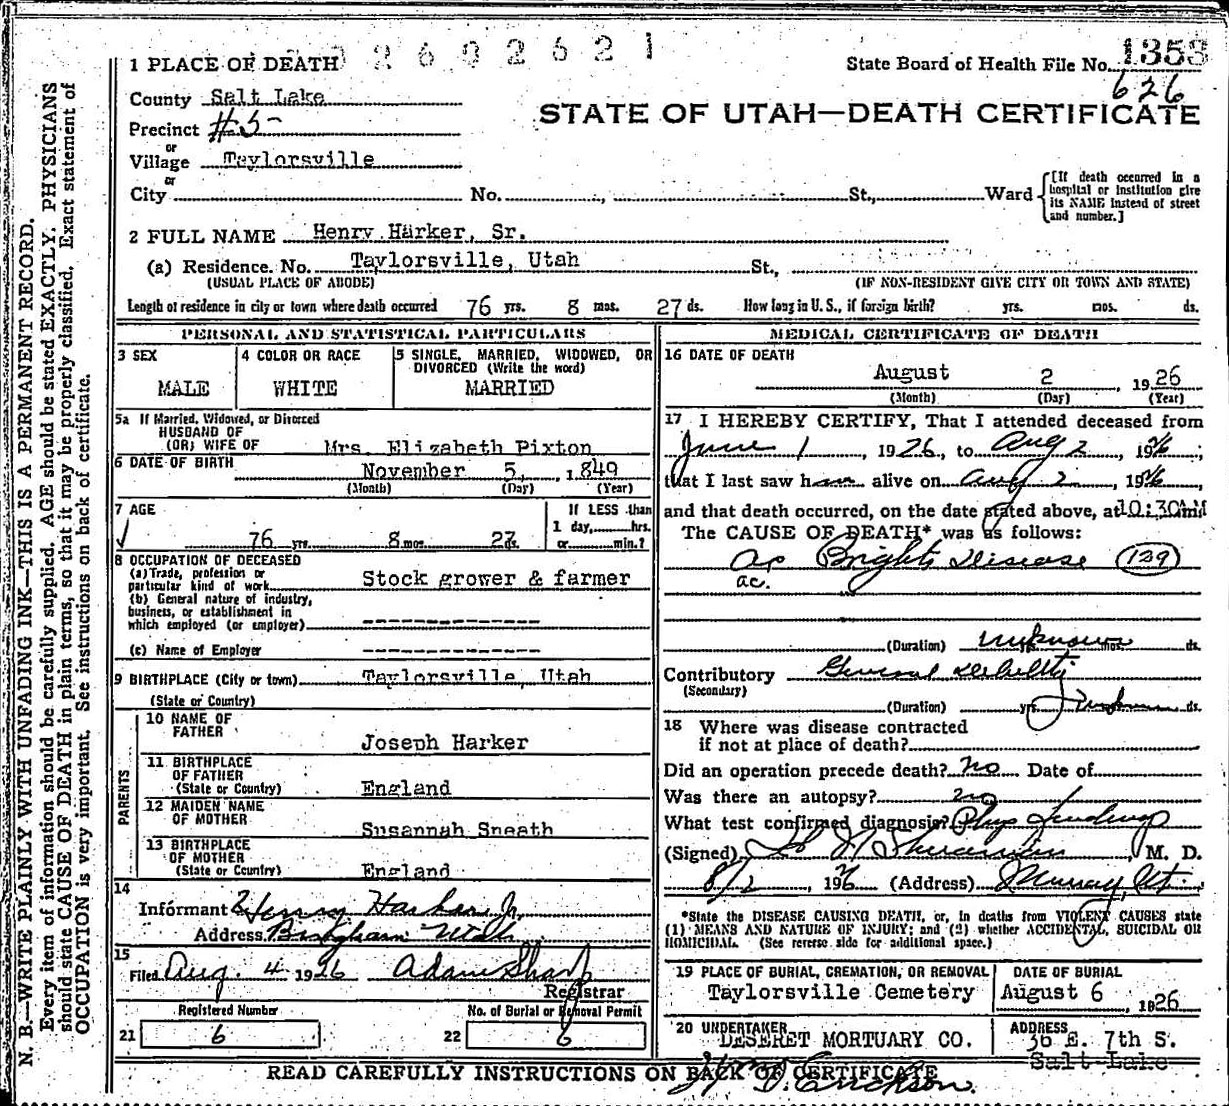 2602621
1 PLACE OF DEATH
State Board of Health File No. 1353
626
County Salt Lake
STATE OF UTAH—DEATH CERTIFICATE
Precinct #5
or
Village Taylorsville
or
City No. St., Ward
[If death occurred in a hospital or institution give its NAME instead of street and number.]
2 FULL NAME Henry Harker, Sr.
(a) Residence. No. Taylorsville, Utah St.,
(USUAL PLACE OF ABODE) (IF NON-RESIDENT GIVE CITY OR TOWN AND STATE)
Length of residence in city or town where death occurred 76 yrs. 8 mos. 27 ds. How long in U. S., if foreign birth? yrs. mos. ds.
PERSONAL AND STATISTICAL PARTICULARS
3 SEX
MALE
4 COLOR OR RACE
WHITE
5 SINGLE, MARRIED, WIDOWED, OR
DIVORCED (Write the word)
MARRIED
5a If Married, Widowed, or Divorced
HUSBAND OF
(OR) WIFE OF Mrs. Elizabeth Pixton
6 DATE OF BIRTH
November 5, 1849
(Month) (Day) (Year)
7 AGE
76 yrs. 8 mos. 27 ds.
If LESS than
1 day, hrs.
or min.?
8 OCCUPATION OF DECEASED
(a) Trade, profession or
particular kind of work Stock grower & farmer
(b) General nature of industry,
business, or establishment in
which employed (or employer)
(c) Name of Employer
9 BIRTHPLACE (City or town) Taylorsville, Utah
(State or Country)
PARENTS
10 NAME OF
FATHER
Joseph Harker
11 BIRTHPLACE
OF FATHER
(State or Country) England
12 MAIDEN NAME
OF MOTHER
Susannah Sneath
13 BIRTHPLACE
OF MOTHER
(State or Country) England
14
Informant Henry Harker Jr.
Address Bingham Utah
15
Filed Aug. 4 1926 Adam Sharp
Registrar
Registered Number
21 6
No. of Burial or Removal Permit
22 6
MEDICAL CERTIFICATE OF DEATH
16 DATE OF DEATH
August 2, 1926
(Month) (Day) (Year)
17 I HEREBY CERTIFY, That I attended deceased from
June 1, 1926, to Aug 2, 1926;
that I last saw him alive on Aug 2, 1926,
and that death occurred, on the date stated above, at 10:30 AM
The CAUSE OF DEATH* was as follows:
Brights Disease (129)
ac.
(Duration) unknown mos. ds.
Contributory General debility
(Secondary)
(Duration) yrs. ds.
18 Where was disease contracted
if not at place of death?
Did an operation precede death? no Date of
Was there an autopsy? no
What test confirmed diagnosis? Phys findings
(Signed) M. D.
8/2, 1926 (Address) Murray, Ut.
*State the DISEASE CAUSING DEATH, or, in deaths from VIOLENT CAUSES state
(1) MEANS AND NATURE OF INJURY; and (2) whether ACCIDENTAL, SUICIDAL OR
HOMICIDAL. (See reverse side for additional space.)
19 PLACE OF BURIAL, CREMATION, OR REMOVAL
Taylorsville Cemetery
DATE OF BURIAL
August 6, 1926
20 UNDERTAKER
DESERET MORTUARY CO.
ADDRESS
36 E. 7th S.
Salt Lake
READ CAREFULLY INSTRUCTIONS ON BACK OF CERTIFICATE
D. Erickson.
N. B.—WRITE PLAINLY WITH UNFADING INK—THIS IS A PERMANENT RECORD.
Every item of information should be carefully supplied. AGE should be stated EXACTLY. PHYSICIANS
should state CAUSE OF DEATH in plain terms, so that it may be properly classified. Exact statement of
OCCUPATION is very important. See instructions on back of certificate.